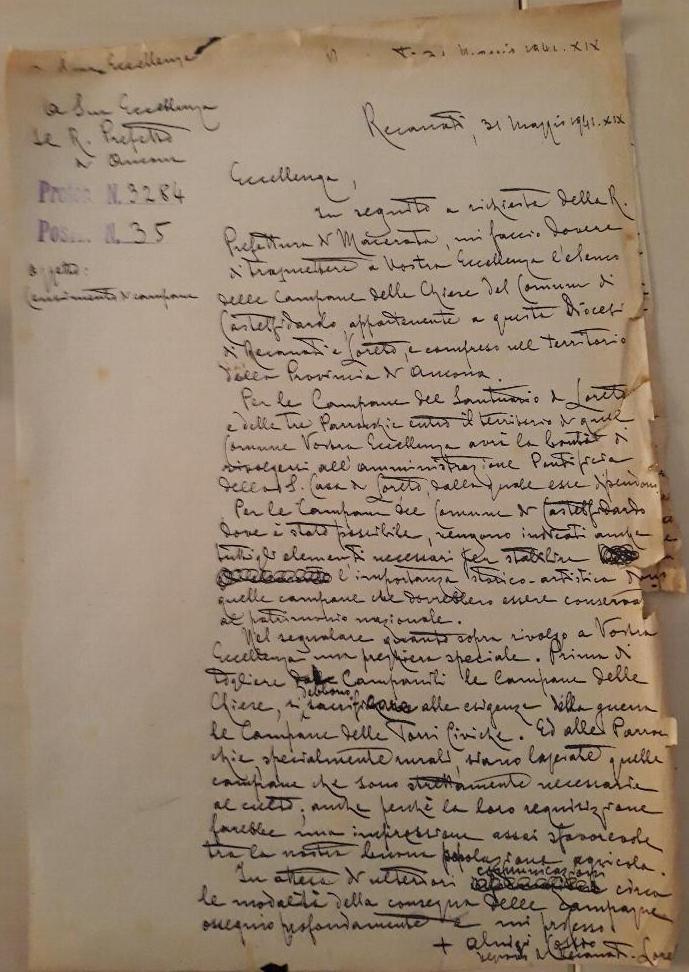 Sua Eccellenza
31 Maggio 1941. XIX
A Sua Eccellenza
Il R. Prefetto
di Ancona
Recanati, 31 Maggio 1941. XIX
Protoc. N. 3284
Pos. N. 35
Oggetto:
Censimento di campane
Eccellenza,
In seguito a richiesta della R.
Prefettura di Macerata, mi faccio dovere
di trasmettere a Vostra Eccellenza l'elenco
delle Campane delle Chiese del Comune di
Castelfidardo, appartenente a queste Diocesi
di Recanati e Loreto, e compreso nel territorio
della Provincia di Ancona.
Per le Campane del Santuario di Loreto
e delle tre Parrocchie entro il territorio di quel
Comune Vostra Eccellenza avrà la bontà di
rivolgersi all'amministrazione Pontificia
della S. Casa di Loreto, dalla quale esse dipendono.
Per le Campane del Comune di Castelfidardo
dove è stato possibile, vengono indicati anche
tutti gli elementi necessari per stabilire
l'importanza storico-artistica di
quelle campane che dovrebbero essere conserva
al patrimonio nazionale.
Nel segnalare quanto sopra rivolgo a Vostra
Eccellenza una preghiera speciale. Prima di
togliere dai Campanili le Campane delle
Chiese, si debbono sacrificare alle esigenze della guerra
le Campane delle Torri Civiche. Ed alle Parroc
chie specialmente rurali, siano lasciate quelle
campane che sono strettamente necessarie
al culto; anche perchè la loro requisizione
farebbe una impressione assai sfavorevole
tra la nostra buona popolazione agricola.
In attesa di ulteriori comunicazioni circa
le modalità della consegna delle Campane
ossequio profondamente e mi professo
+ Aluigi Cossio
Vescovo di Recanati - Lore